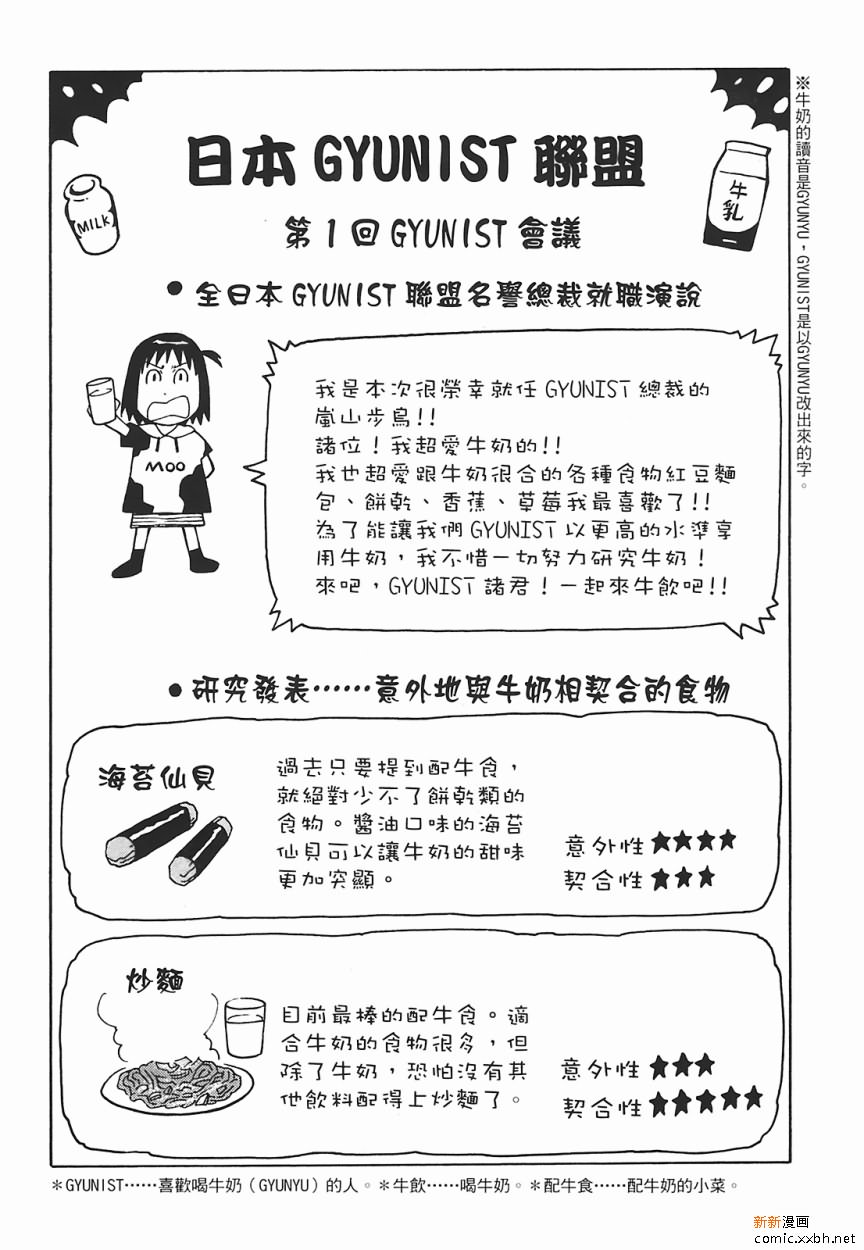 日本 GYUNIST 聯盟
第1回 GYUNIST 會議
MILK
牛乳
※牛奶的讀音是GYUNYU，GYUNIST是以GYUNYU改出來的字。
●全日本 GYUNIST 聯盟名譽總裁就職演說
MOO
我是本次很榮幸就任 GYUNIST 總裁的
嵐山步鳥!!
諸位！我超愛牛奶的!!
我也超愛跟牛奶很合的各種食物紅豆麵
包、餅乾、香蕉、草莓我最喜歡了!!
為了能讓我們 GYUNIST 以更高的水準享
用牛奶，我不惜一切努力研究牛奶！
來吧，GYUNIST 諸君！一起來牛飲吧!!
●研究發表……意外地與牛奶相契合的食物
海苔仙貝
過去只要提到配牛食，
就絕對少不了餅乾類的
食物。醬油口味的海苔
仙貝可以讓牛奶的甜味
更加突顯。
意外性★★★★
契合性★★★
炒麵
目前最棒的配牛食。適
合牛奶的食物很多，但
除了牛奶，恐怕沒有其
他飲料配得上炒麵了。
意外性★★★
契合性★★★★★
＊GYUNIST……喜歡喝牛奶（GYUNYU）的人。＊牛飲……喝牛奶。＊配牛食……配牛奶的小菜。
新新漫画
comic.xxbh.net